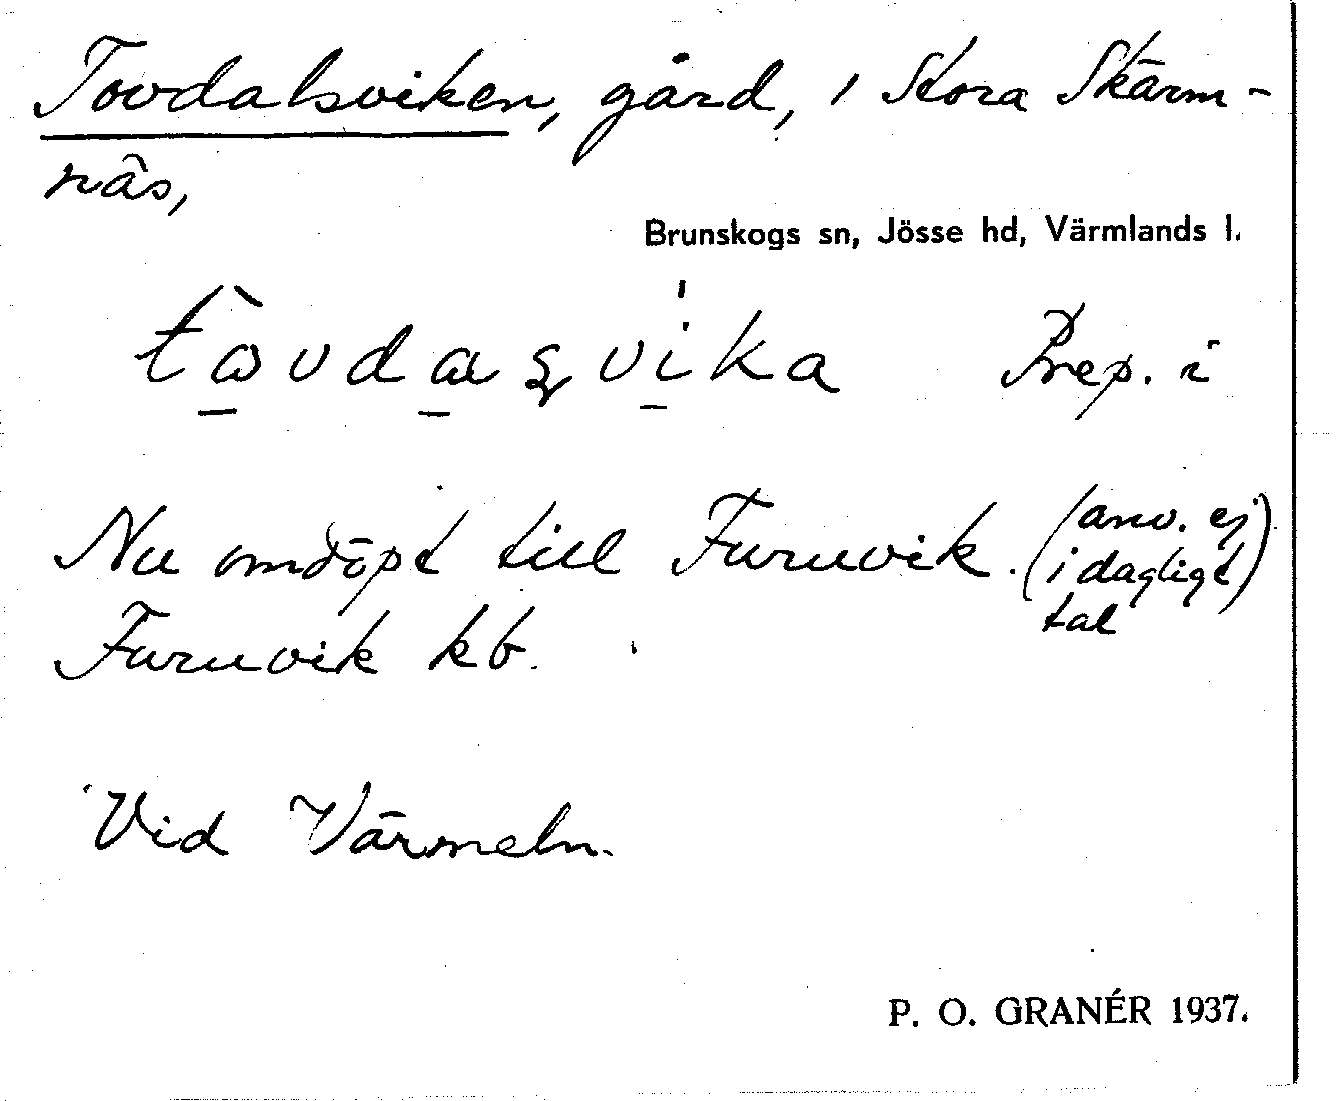 Tovdalsviken, gård, i Stora Skärm-
näs,
Brunskogs sn, Jösse hd, Värmlands l.
tɷ̀vdaʂvika Prep. i
Nu omdöpt till Furuvik. (anv. ej
i dagligt)
tal
Furuvik kb.
Vid Värmeln.
P. O. GRANÉR 1937.